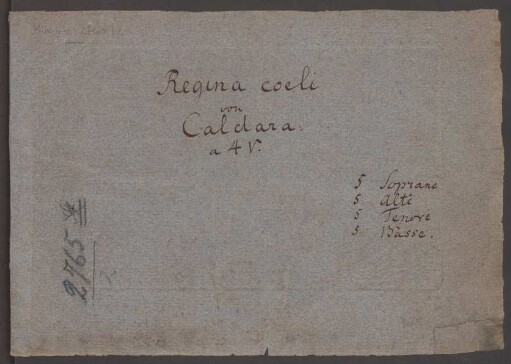 Regina coeli
von
Caldara.
a 4 V.
5 Soprane
5 Alti
5 Tenore
5 Bässe.
2765